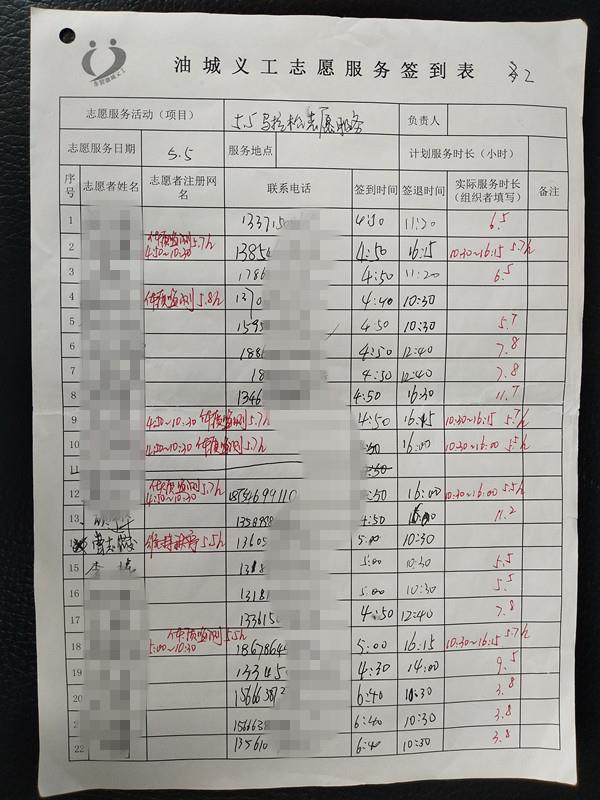 油城义工志愿服务签到表
志愿服务活动（项目） 5.5马拉松志愿服务 负责人
志愿服务日期 5.5 服务地点 计划服务时长（小时）
序号 志愿者姓名 志愿者注册网名 联系电话 签到时间 签退时间 实际服务时长（组织者填写） 备注
1 1337150 4:50 11:20 6.5
2 体质监测 5.7h 4:50~10:30 1385 4:50 16:15 10:30~16:15 5.7h
3 1786 4:50 11:20 6.5
4 体质监测 5.8h 1370 4:40 10:30
5 1595 4:50 10:30 5.7
6 188 4:50 12:40 7.8
7 18 4:50 12:40 7.8
8 1346 4:50 16:30 11.7
9 4:50~10:30 体质监测 5.7h 4:50 16:15 10:30~16:15 5.7h
10 体质监测 5.7h :50 16:00 10:30~16:00 5.5h
11 :50
12 体质监测 5.7h 4:50~10:30 :50 16:00 10:30~16:00 5.5h
13 4:50 16:00 11.2
曹志 维持秩序 5.5h 13605 5:00 10:30
15 李 1318 5:00 10:30 5.5
16 1318 5:00 10:30 5.5
17 1336150 4:50 12:40 7.8
18 体质监测 5.5h 5:00~10:30 18678644 5:00 16:15 10:30~16:15 5.7h
19 133450 4:30 14:00 9.5
20 6:40 10:30 3.8
21 6:40 10:30 3.8
22 135610 6:40 10:30 3.8